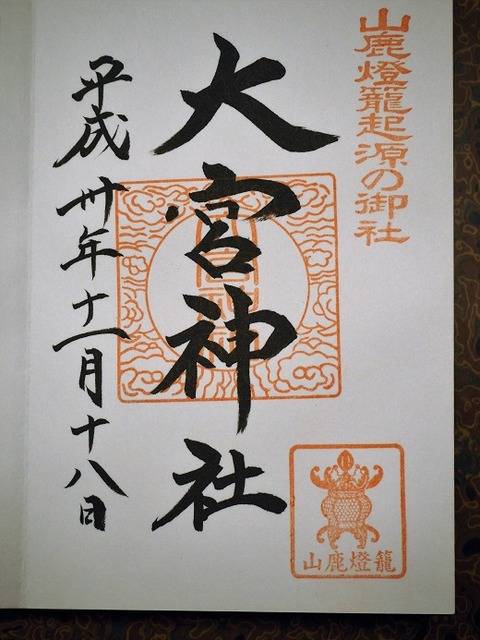 山鹿燈籠起源の御社
大宮神社
平成卅年十一月十八日
山鹿燈籠